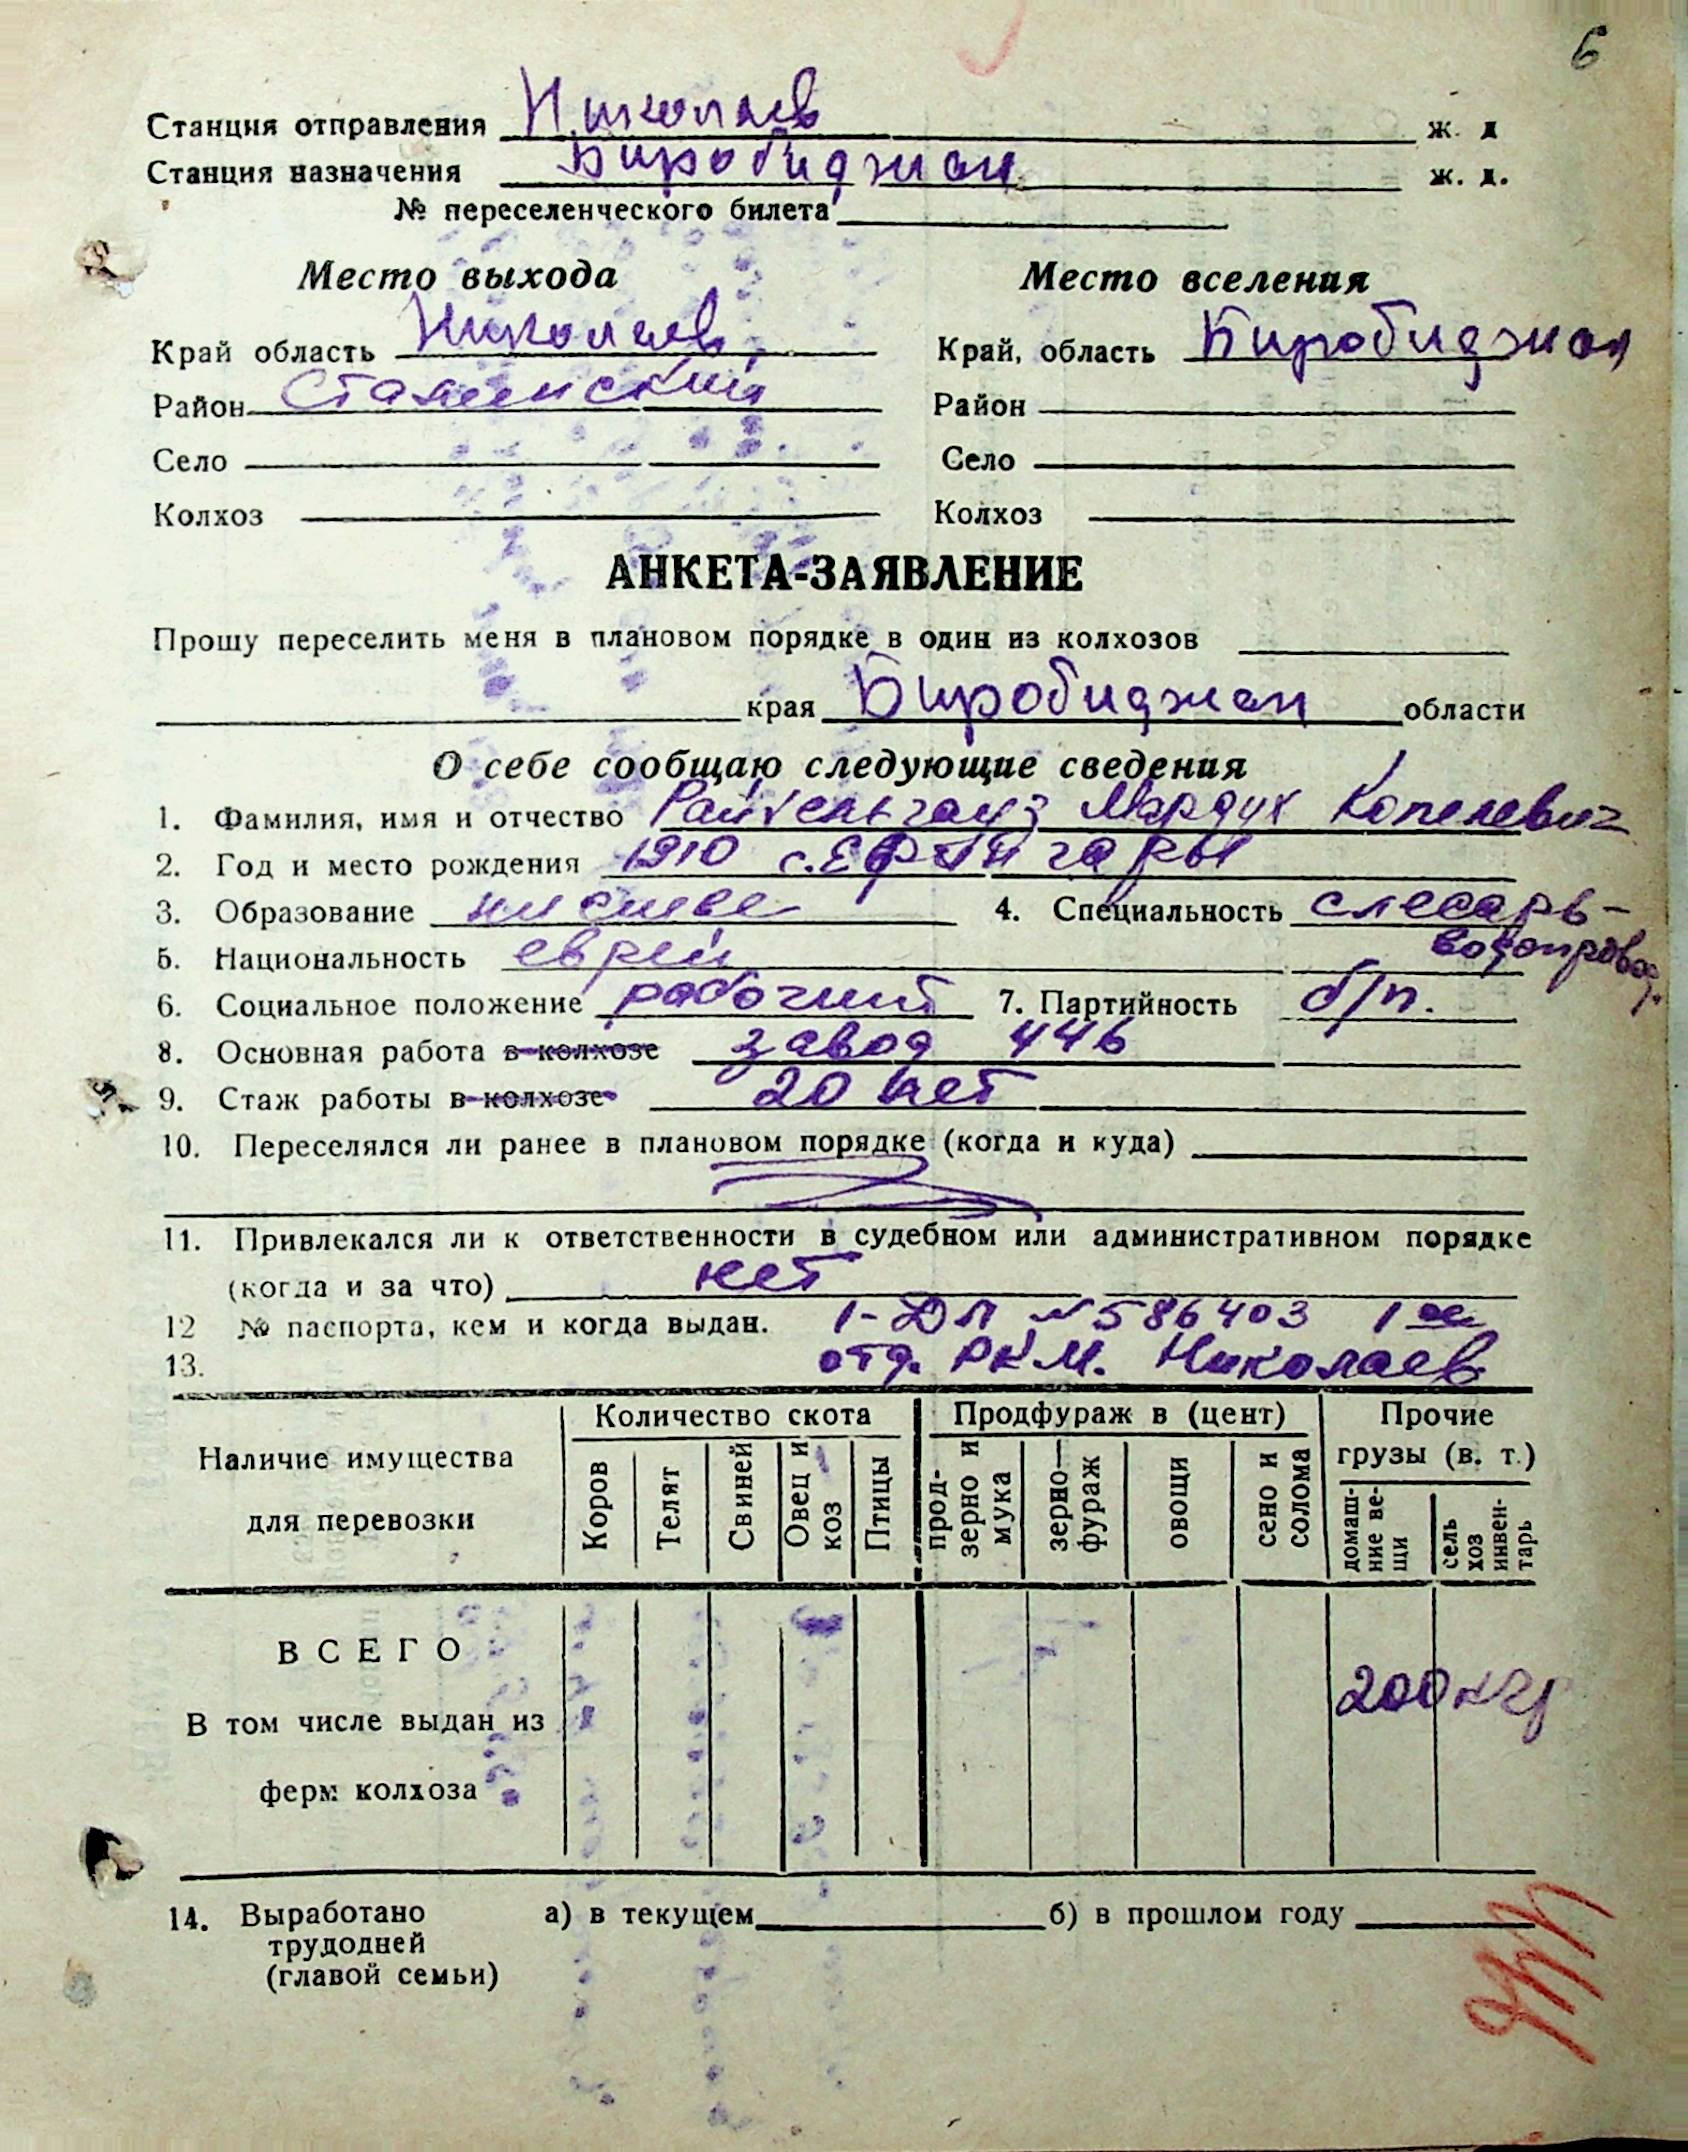 6
Станция отправления Николаев ж. д
Станция назначения Биробиджан ж. д.
№ переселенческого билета
Место выхода Место вселения
Край область Николаев Край, область Биробиджан
Район Сталинский Район
Село Село
Колхоз Колхоз
АНКЕТА-ЗАЯВЛЕНИЕ
Прошу переселить меня в плановом порядке в один из колхозов
края Биробиджан области
О себе сообщаю следующие сведения
1. Фамилия, имя и отчество Райхельгауз Мордух Копелевич
2. Год и место рождения 1910 с. Ефингары
3. Образование нисшее 4. Специальность слесарь-
водопровод.
5. Национальность еврей
6. Социальное положение рабочий 7. Партийность б/п.
8. Основная работа в колхозе завод 446
9. Стаж работы в колхозе 20 лет
10. Переселялся ли ранее в плановом порядке (когда и куда)
11. Привлекался ли к ответственности в судебном или административном порядке
(когда и за что) нет
12 № паспорта, кем и когда выдан. 1-ДЛ № 586403 1ое
13. отд. РКМ. Николаев
Наличие имущества для перевозки
Количество скота
Коров
Телят
Свиней
Овец и коз
Птицы
Продфураж в (цент)
прод-
зерно и
мука
зерно—
фураж
овощи
сено и
солома
Прочие
грузы (в. т.)
домаш-
ние ве-
щи
сель
хоз
инвен-
тарь
ВСЕГО
200 кгр
В том числе выдан из
ферм колхоза
14. Выработано а) в текущем б) в прошлом году
трудодней
(главой семьи)